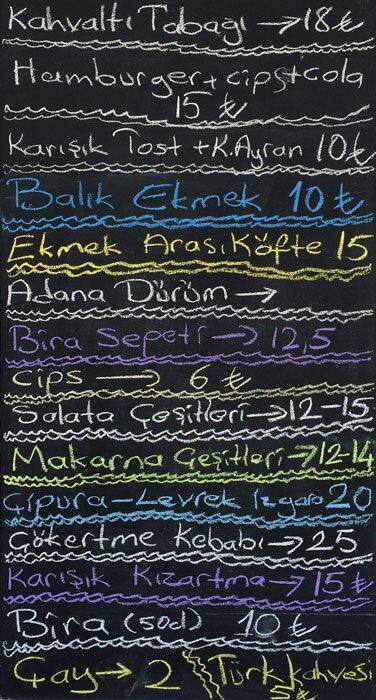 Kahvaltı Tabağı → 18 ₺
Hamburger + cips + cola
15 ₺
Karışık Tost + K.Ayran 10 ₺
Balık Ekmek 10 ₺
Ekmek Arası Köfte 15
Adana Dürüm →
Bira Sepeti → 12,5
Cips → 6 ₺
Salata Çeşitleri → 12-15
Makarna Çeşitleri → 12-14
Çipura-Levrek Izgara 20
Çökertme Kebabı → 25
Karışık Kızartma → 15 ₺
Bira (50cl) 10 ₺
Çay → 2 Türk kahvesi